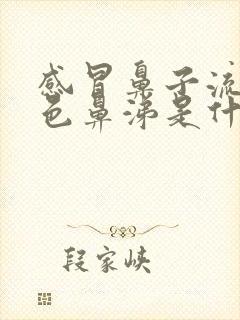 感冒鼻子流
色鼻涕是什
段家峡